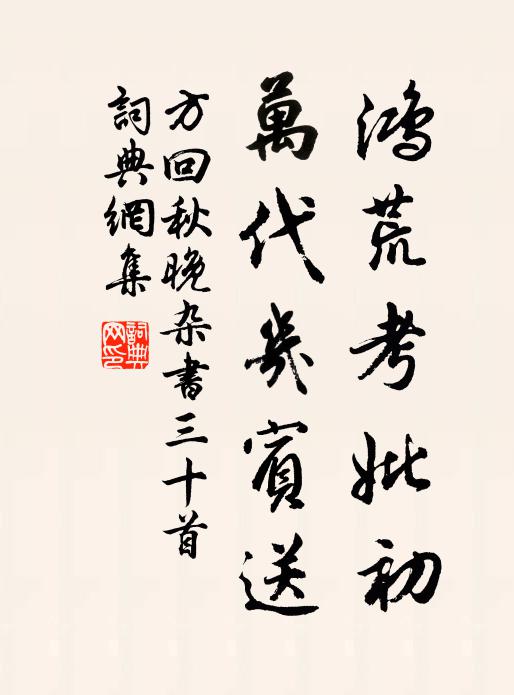 鸿荒考妣初
萬代幾賓送
方回秋晚杂書三十首
詞典網集
詞典網印